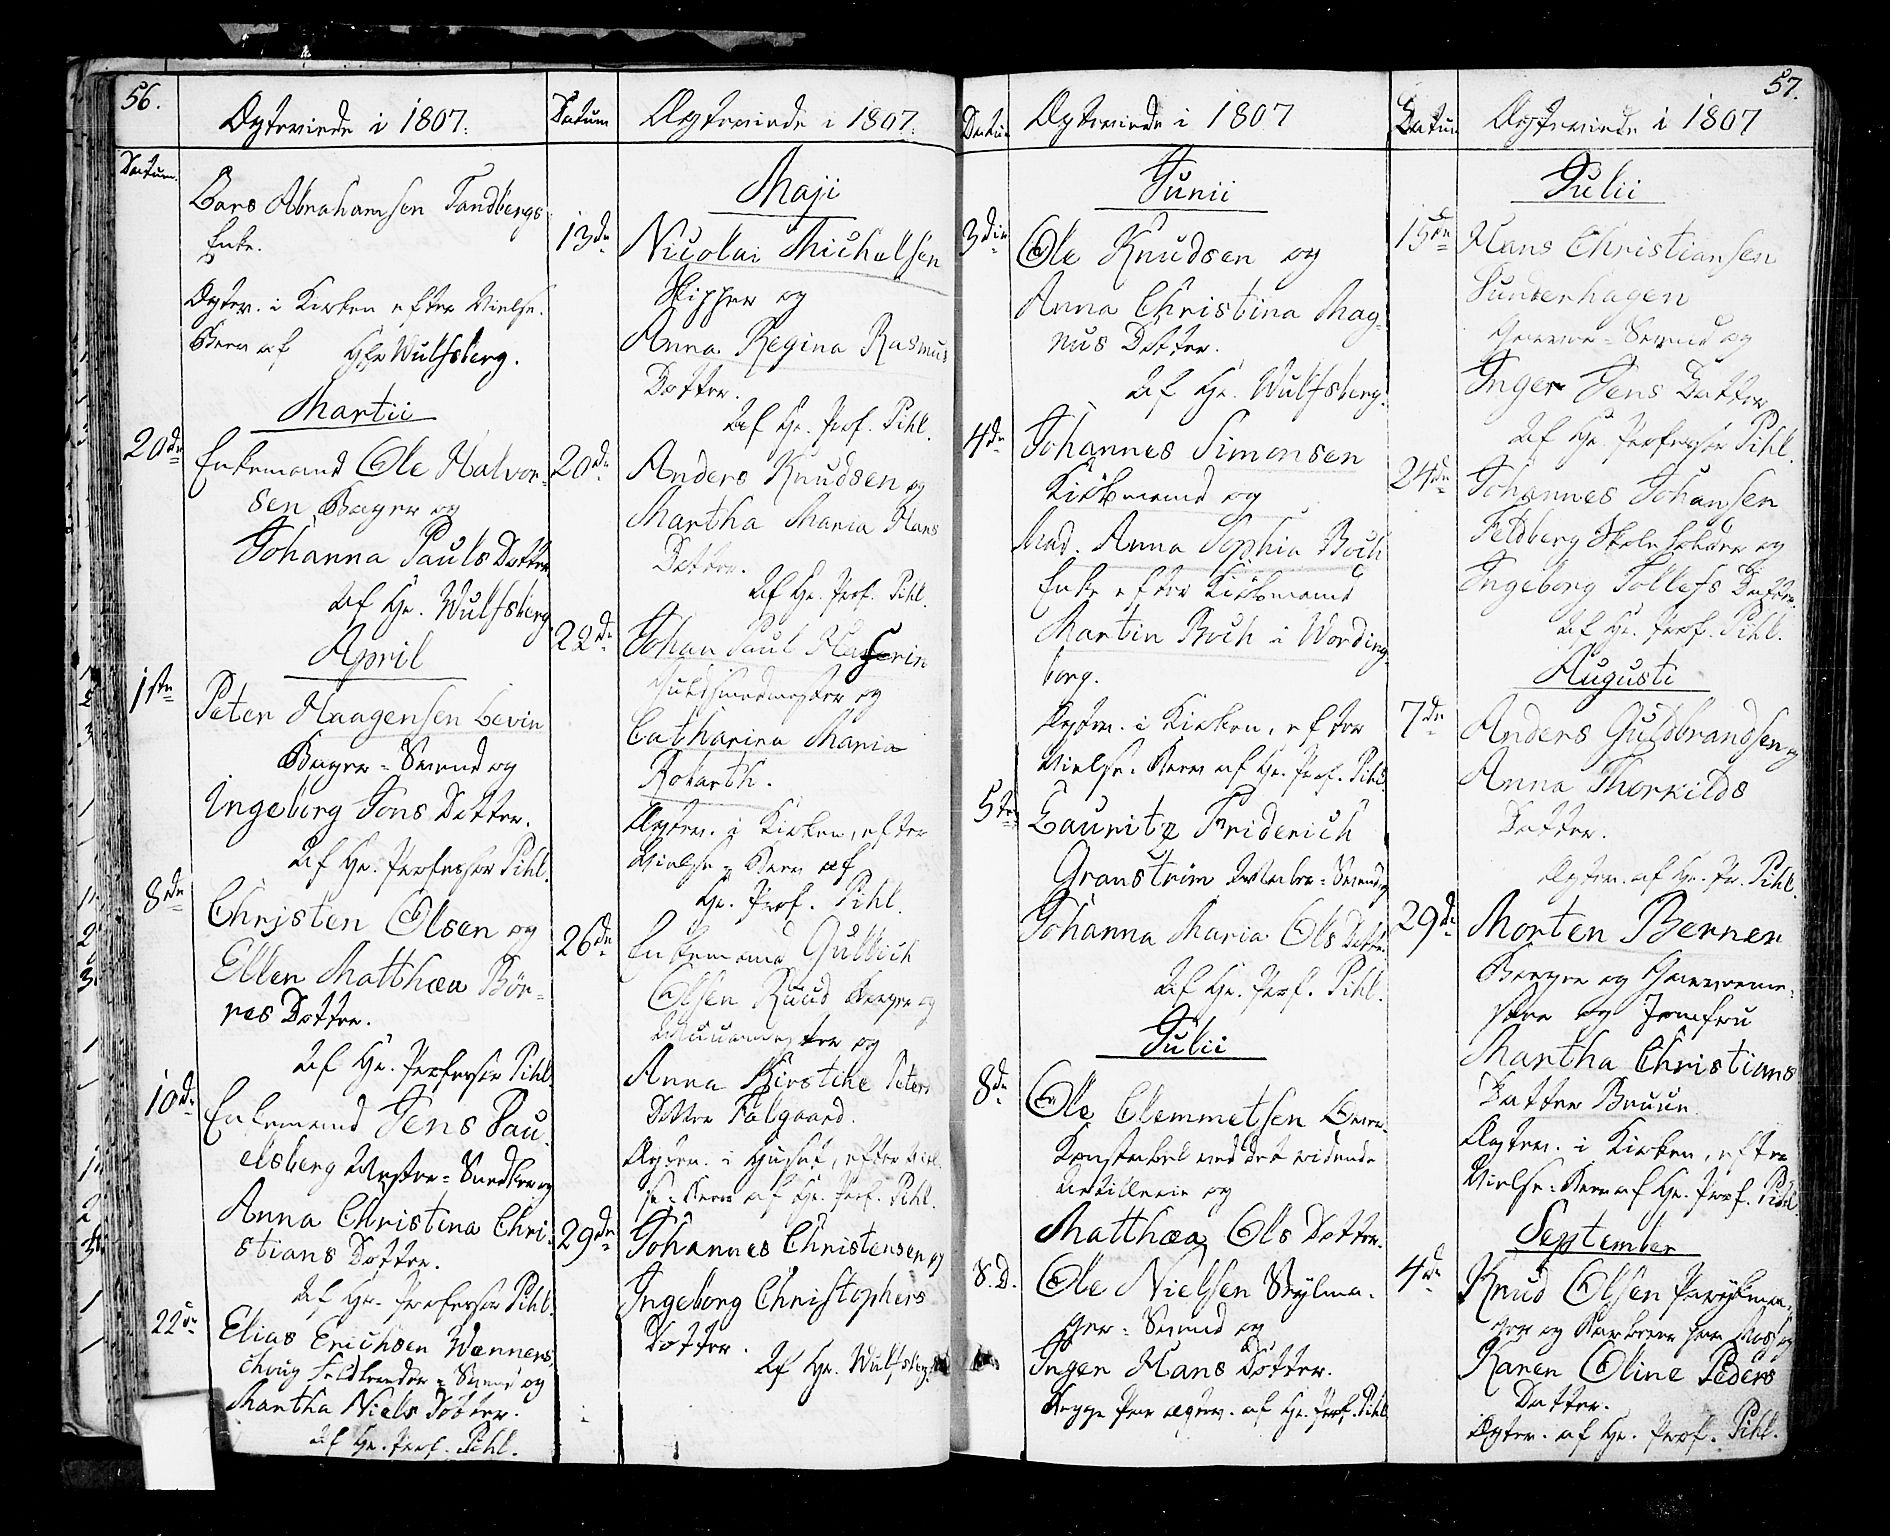 56.
Ægteviede i 1807.
Datum.
Lars Abrahamsen Sandbergs
Enke.
Ægtev. i Kirken efter Vielse-
Brev af Hr. Wulfsberg.
Martii
20de
Enkemand Ole Halvor-
sen Bager og
Johanna Pauls Datter
Af Hr. Wulfsberg
April
1ste
Peter Haagensen Levin
Bager-Svend og
Ingeborg Jons Datter.
Af Hr. Professor Pihl.
8de
Christen Olsen og
Ellen Matthæa Bör-
res Datter.
Af Hr. Professor Pihl.
10de
Enkemand Jens Pau-
elsberg Mester-Snedker og
Anna Christina Chri-
stians Datter.
Af Hr. Professor Pihl.
22de
Elias Erichsen Wenners-
Svend og
Martha Niels Datter.
Af Hr. Prof. Pihl.
Datum
Ægteviede i 1807.
Maji
13de
Nicolai Michelsen
Skipper og
Anna Regina Rasmus
Datter.
Af Hr. Prof. Pihl.
20de
Anders Knudsen og
Martha Maria Hans
Datter.
Af Hr. Prof. Pihl.
22de
Johan Paul
Guldsmedmester og
Catharina Maria
Robarth.
Ægtev. i Kirken, efter
Vielse-Brev af
Hr. Prof. Pihl.
26de
Enkemand Gulbich
Olsen Ruud Borger og
Muurmester og
Anna Kirstine Peters
Datter Falgaard.
Ægtev. i Huset, efter Viel-
se-Brev af Hr. Prof. Pihl.
29de
Johannes Christensen og
Ingeborg Christophers
Datter.
Af Hr. Wulfsberg.
57.
Datum
Ægteviede i 1807
Junii
3die
Ole Knudsen og
Anna Christina Mag-
nus Datter.
Af Hr. Wulfsberg.
4de
Johannes Simonsen
Kiöbmand og
Mad. Anna Sophia Boch
Enke efter Kiöbmand
Martin Boch i Wording-
borg.
Ægtev. i Kirken, efter
Vielse-Brev af Hr. Prof. Pihl
5te
Lauritz Friderich
Granström Svend og
Johanna Maria Ols Datter.
Af Hr. Prof. Pihl.
Julii
8de
Ole Clemmetsen
Konstabel ved det ridende
Artillerie og
Matthæa Ols Datter.
8. D.
Ole Nielsen Seylma-
ger-Svend og
Inger Hans Datter.
Begge Par ægtev. af Hr. Prof. Pihl
Datum
Ægteviede i 1807
Julii
15de
Hans Christiansen
Sunderhagen
Garver-Svend og
Inger Jens Datter
Af Hr. Professor Pihl.
24de
Johannes Johansen
Feldberg Skoleholder og
Ingeborg Tollefs Datter.
Af Hr. Prof. Pihl.
Augusti
7de
Anders Guldbrandsen og
Anna Thorkilds
Datter.
Ægtev. af Hr. Pr. Pihl.
29de
Morten Berner
Borger og Garverme-
ster og Jomfru
Martha Christians
Datter Bruun.
Ægtev. i Kirken, efter
Vielse-Brev af Hr. Prof. Pihl.
September
4de
Knud Olsen Parykma-
ger og Barberer paa Moss og
Karen Oline Peders
Datter.
Ægtev. af Hr. Prof. Pihl.